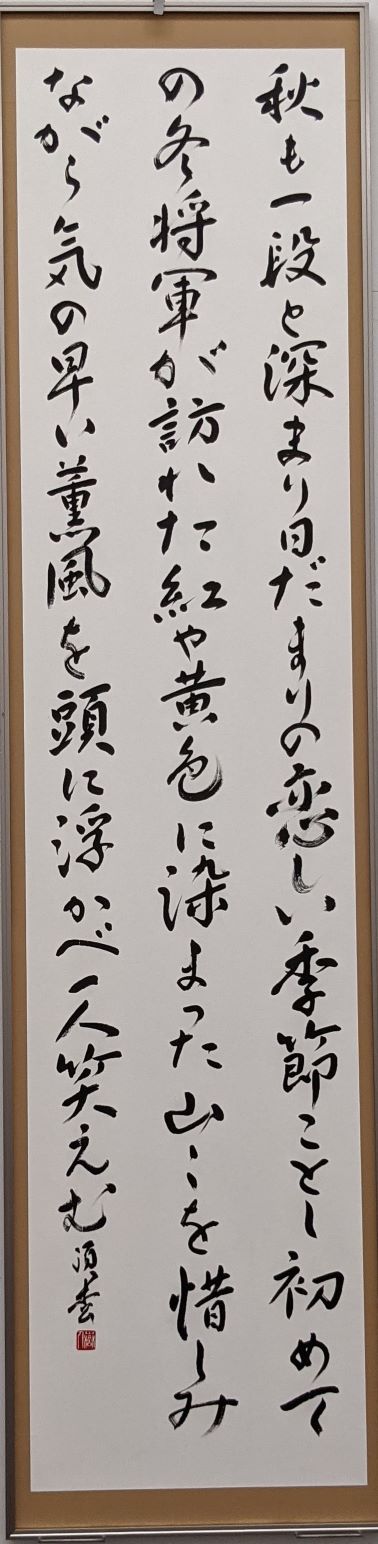 秋も一段と深まり日だまりの恋しい季節ことし初めて
の冬将軍が訪れた紅や黄色に染まった山々を惜しみ
ながら気の早い薫風を頭に浮かべ一人笑えむ